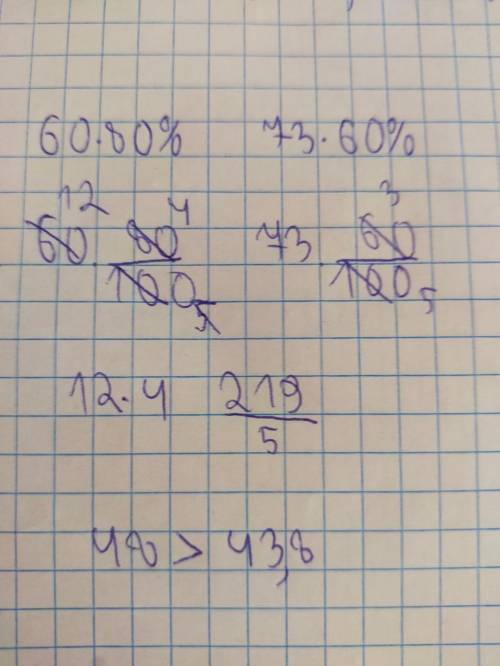 60·80% 73·60%
12 4 3
60·80/100 5 73·60/100 5
12·4 219/5
48 > 43,8